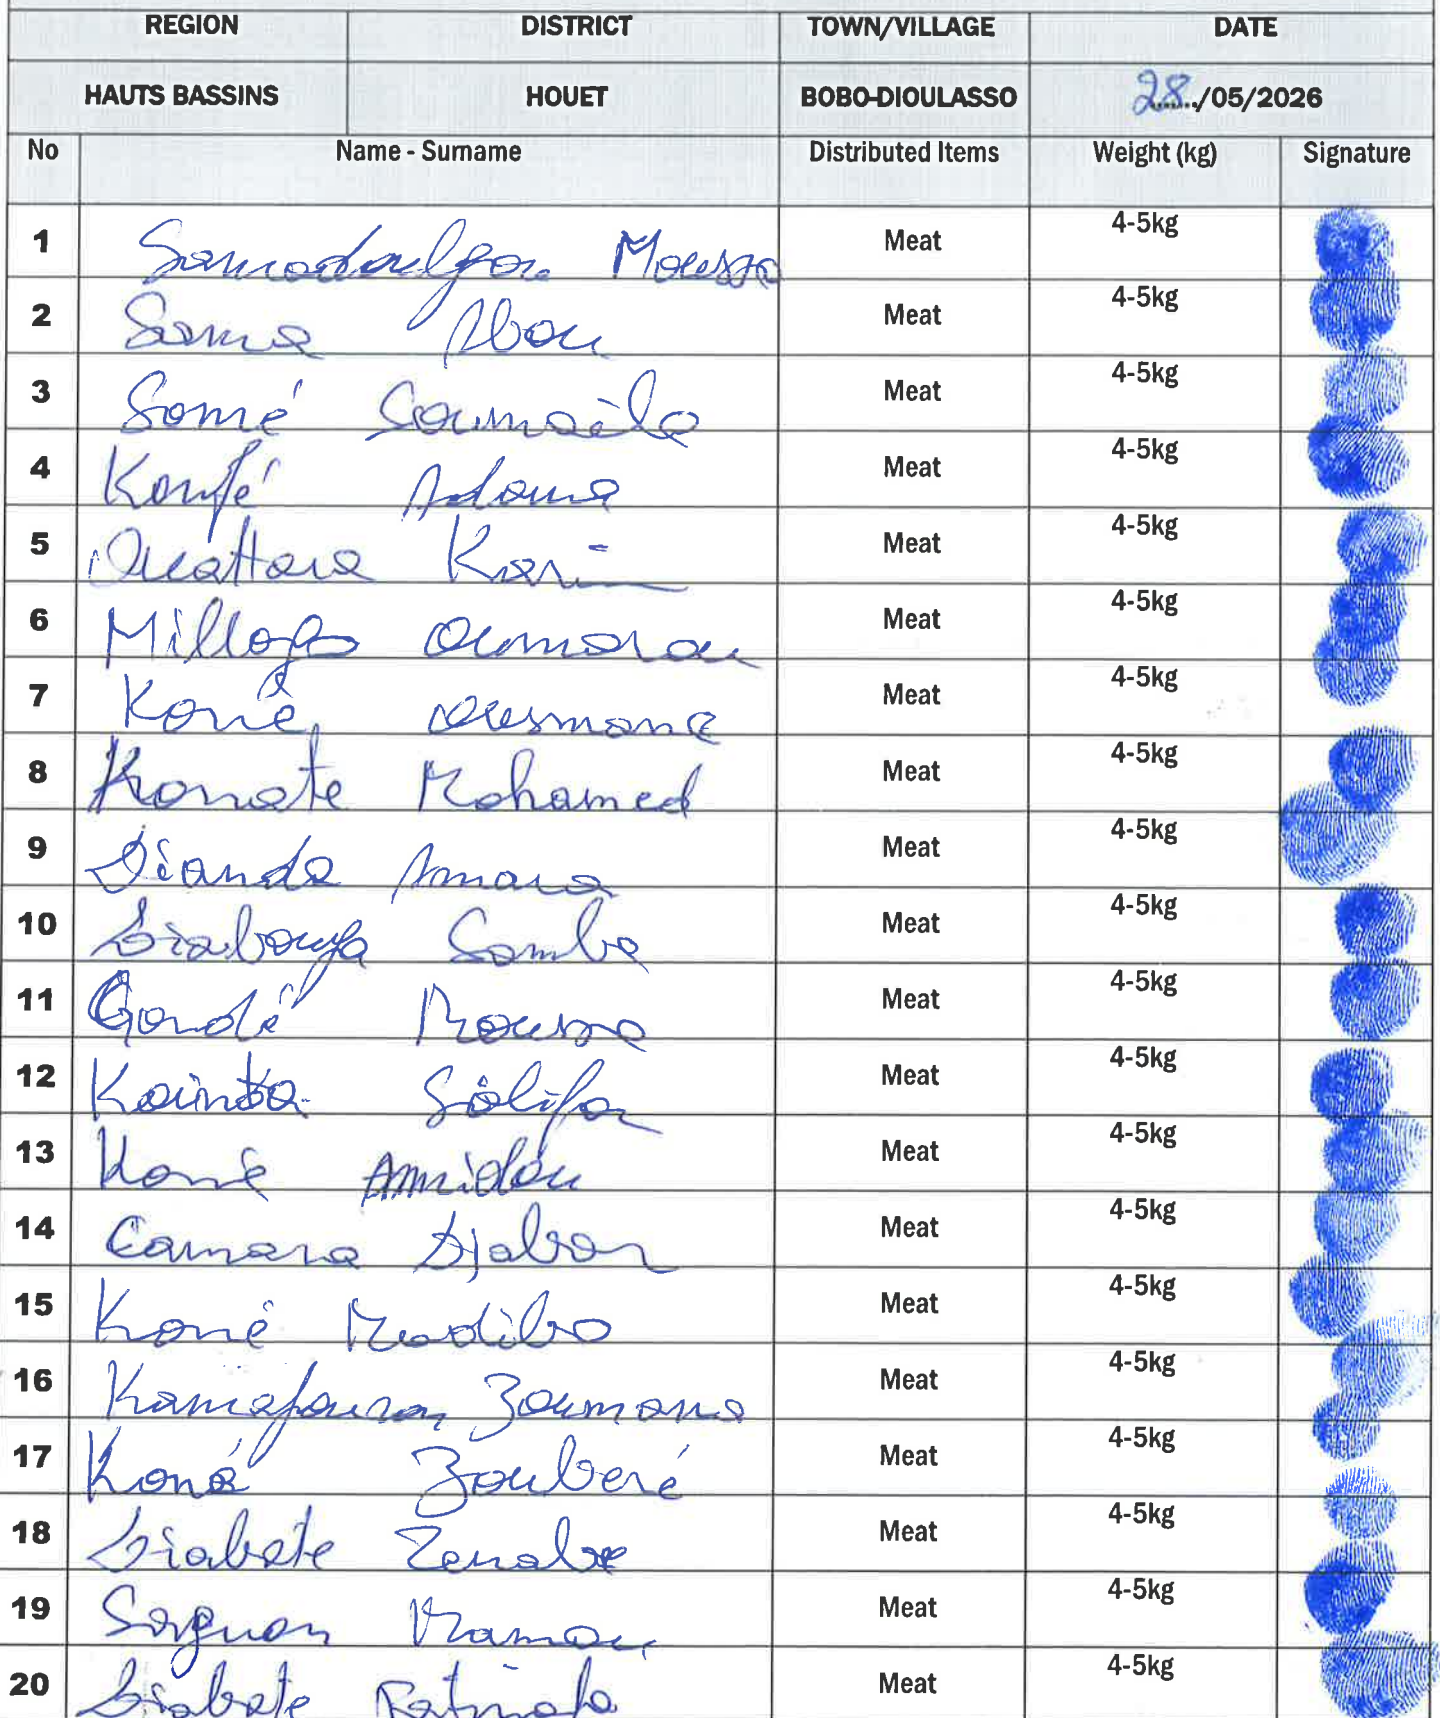 REGION DISTRICT TOWN/VILLAGE DATE
HAUTS BASSINS HOUET BOBO-DIOULASSO 28/05/2026
No Name - Surname Distributed Items Weight (kg) Signature
1 Moussa Meat 4-5kg
2 Sama Abou Meat 4-5kg
3 Somé Soumaèla Meat 4-5kg
4 Konfé Adama Meat 4-5kg
5 Ouattara Karim Meat 4-5kg
6 Millogo Oumarou Meat 4-5kg
7 Koné Ousmane Meat 4-5kg
8 Konate Mohamed Meat 4-5kg
9 Dianda Amara Meat 4-5kg
10 Samba Meat 4-5kg
11 Gondé Moussa Meat 4-5kg
12 Salifou Meat 4-5kg
13 Koné Amidou Meat 4-5kg
14 Camara Meat 4-5kg
15 Koné Madibo Meat 4-5kg
16 Zoumana Meat 4-5kg
17 Koné Zouberé Meat 4-5kg
18 Diabate Zenabe Meat 4-5kg
19 Sagnon Meat 4-5kg
20 Diabate Meat 4-5kg